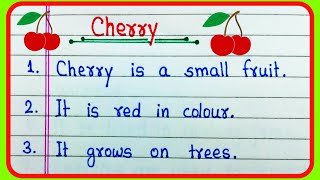 Cherry
1. Cherry is a small fruit.
2. It is red in colour.
3. It grows on trees.